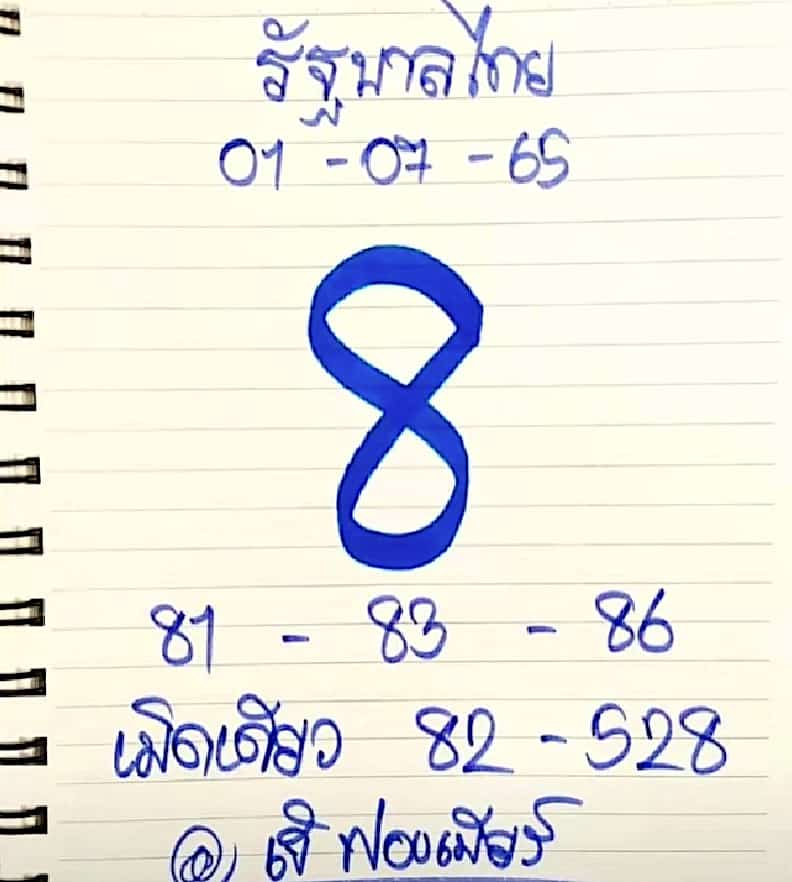 รัฐบาลไทย
01 - 07 - 65
8
81 - 83 - 86
เม็ดเดียว 82 - 528
@ เจ๊ฟองเบียร์